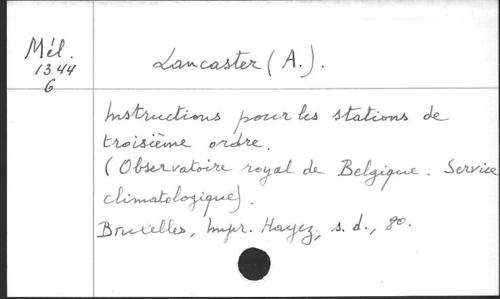 Mél.
1344
6
Lancaster (A.).
Instructions pour les stations de
troisième ordre.
(Observatoire royal de Belgique. Service
climatologique).
Bruxelles, Impr. Hayez, s. d., 8o.